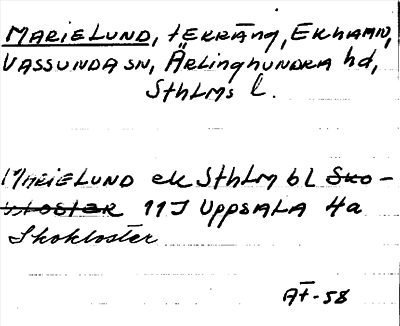 MARIELUND, tERRÄng, EKHAMN,
VASSUNDA SN, ÄRLINGHUNDRA hd,
SthLMs L.
MARIELUND ek SthLM bl Sko-
kloster 11J UPPSALA 4a
Skokloster
AF-58